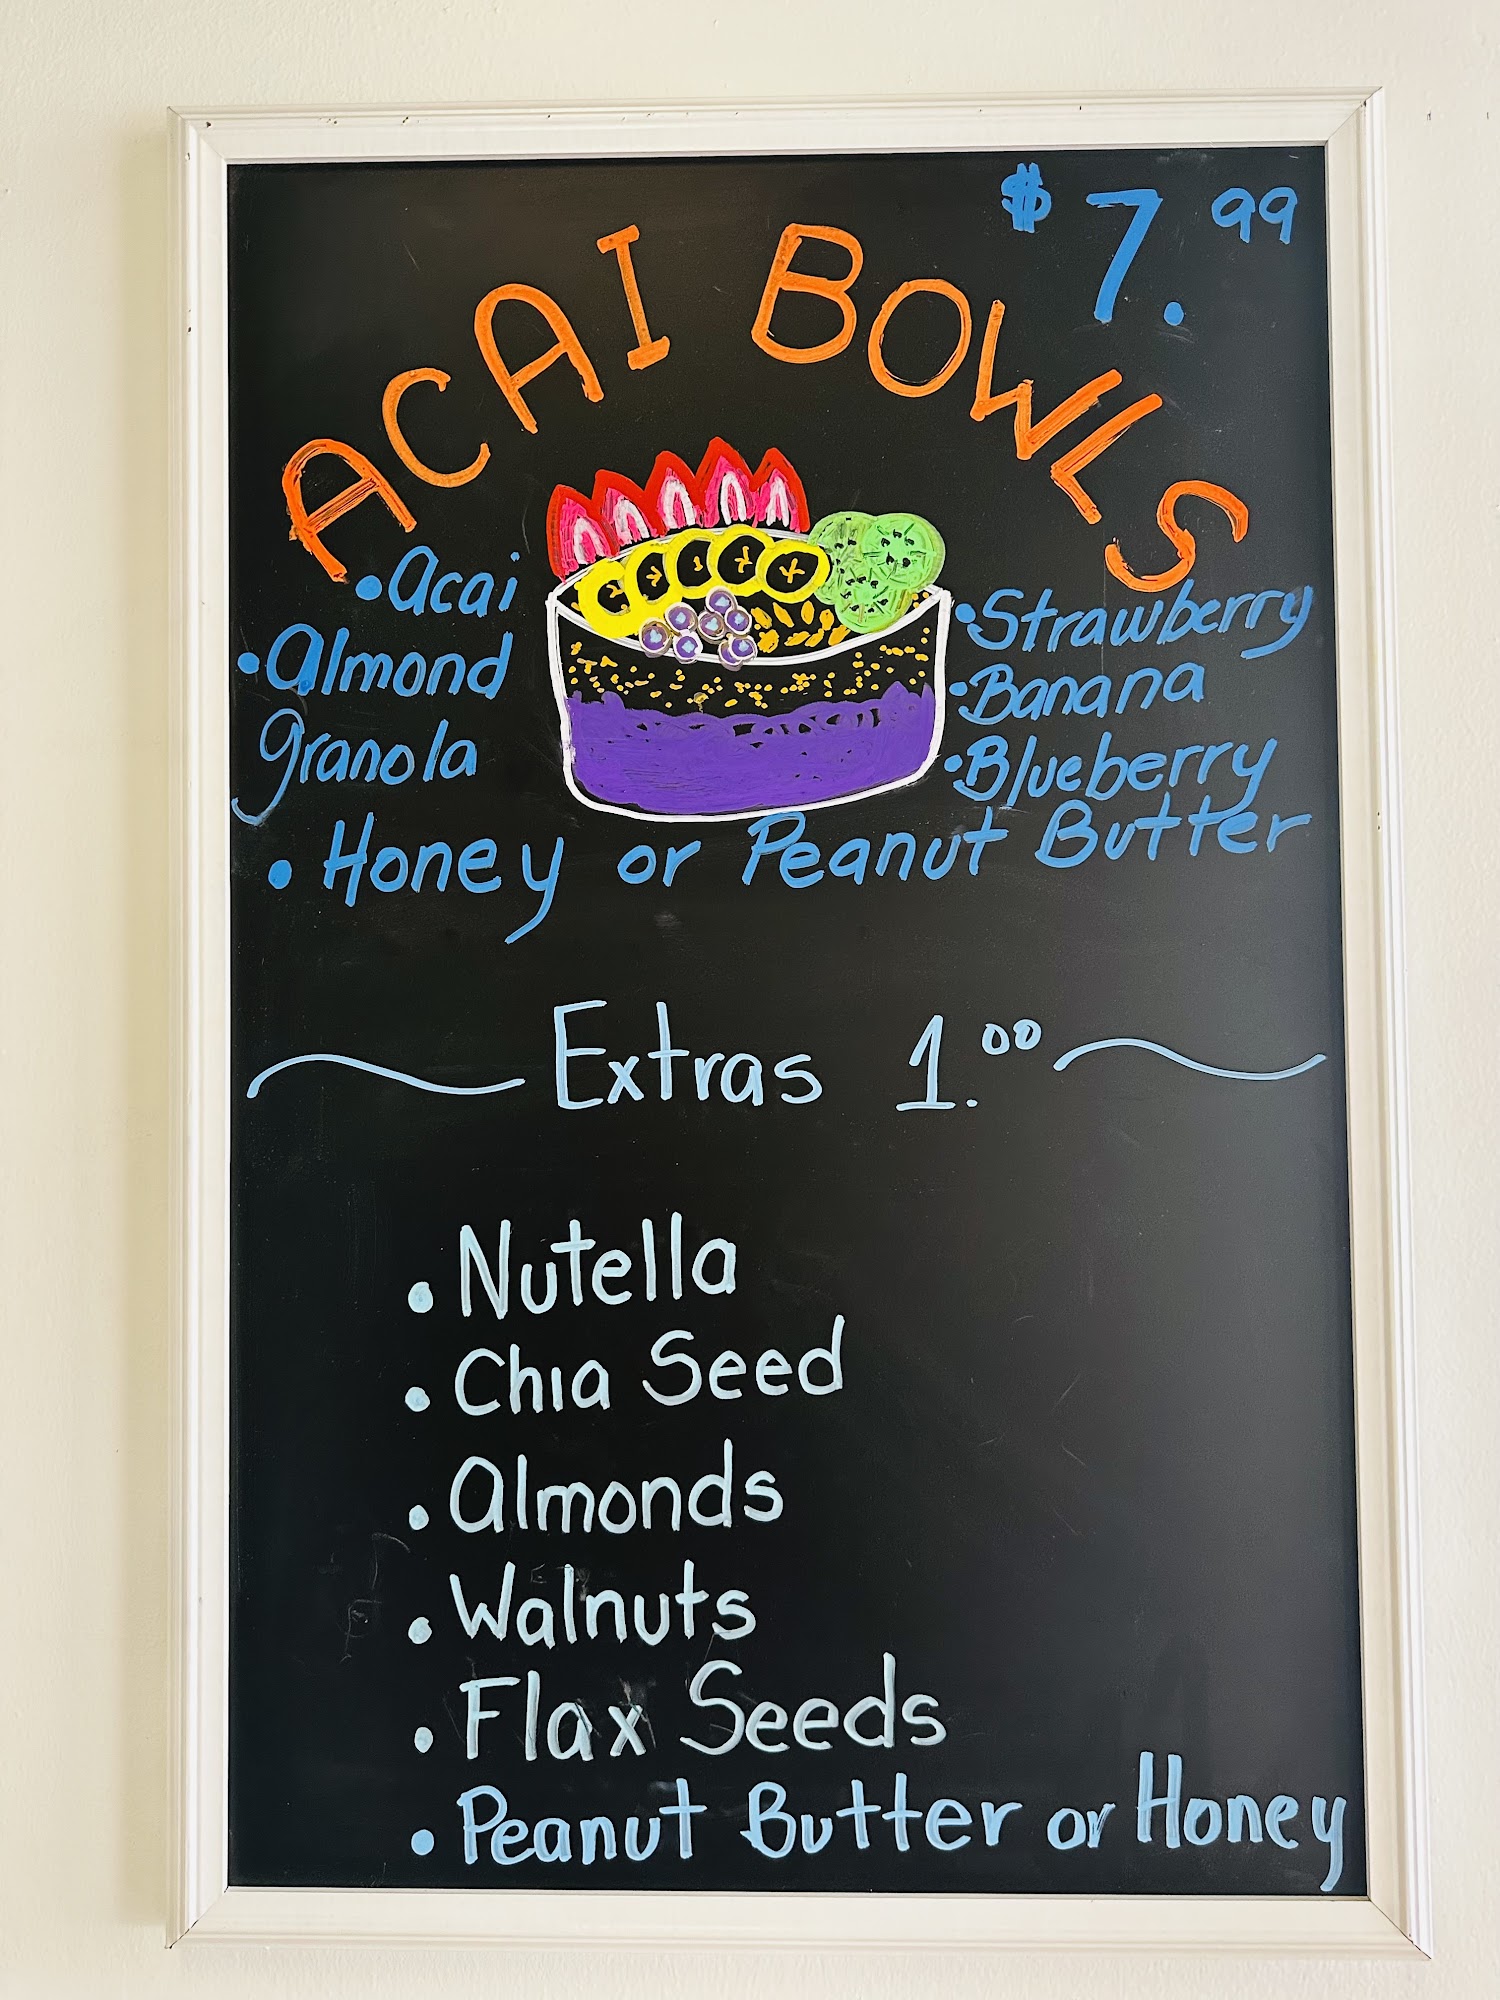 $7.99
ACAI BOWLS
• Acai
• Almond
granola
• Strawberry
• Banana
• Blueberry
• Honey or Peanut Butter
Extras 1.00
• Nutella
• Chia Seed
• Almonds
• Walnuts
• Flax Seeds
• Peanut Butter or Honey